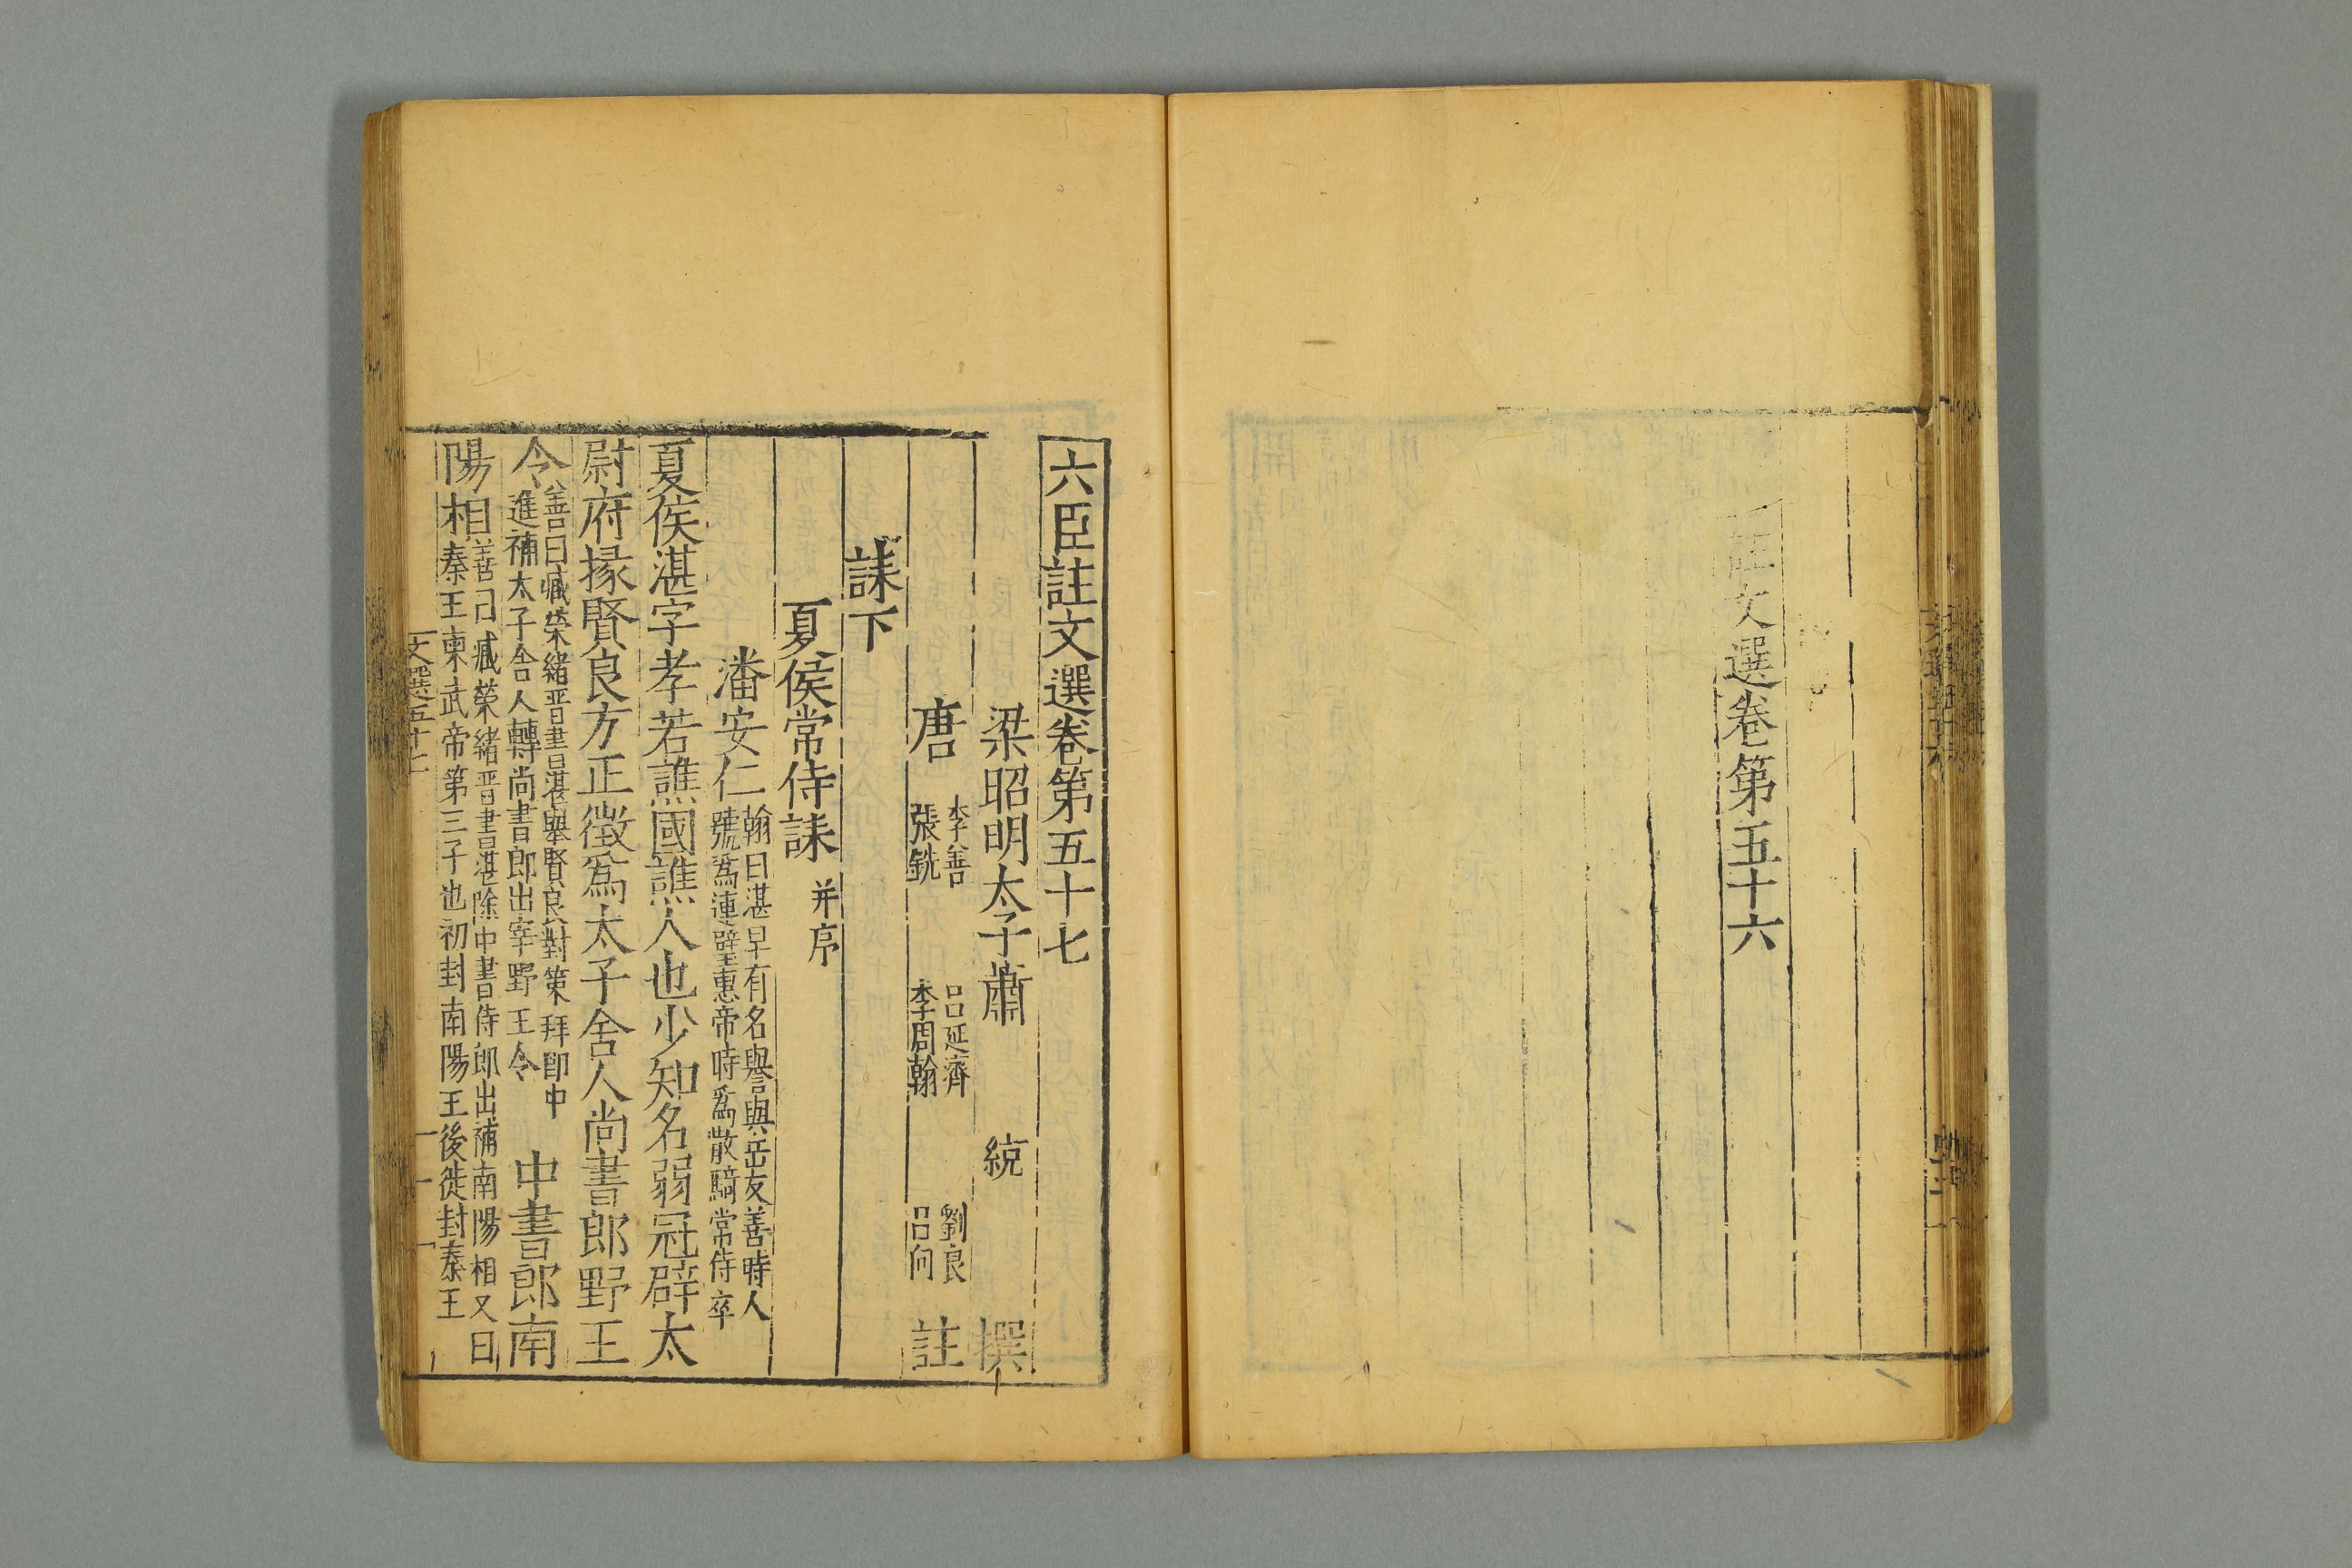 註文選卷第五十六
六臣註文選卷第五十七
梁昭明太子蕭統撰
唐 李善 呂延濟 劉良
張銑 李周翰 呂向 註
誄下
夏侯常侍誄 并序
潘安仁 翰曰湛早有名譽與岳友善時人
號爲連璧惠帝時爲散騎常侍卒
夏侯湛字孝若譙國譙人也少知名弱冠辟太
尉府掾賢良方正徵爲太子舍人尚書郎野王
令 善曰臧榮緒晋書曰湛舉賢良對策拜郎中
進補太子舍人轉尚書郎出宰野王令 中書郎南
陽相 善曰臧榮緒晋書曰湛除中書侍郎出補南陽相又曰
秦王柬武帝第三子也初封南陽王後徙封秦王
文選五十七